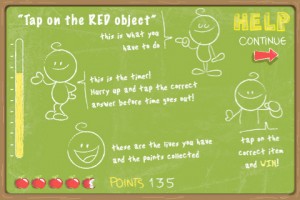 "Tap on the RED object"
HELP
CONTINUE
this is what you
have to do
this is the timer!
Hurry up and tap the correct
answer before time goes out!
these are the lives you have
and the points collected
tap on
the correct
item
and WIN!
POINTS 135